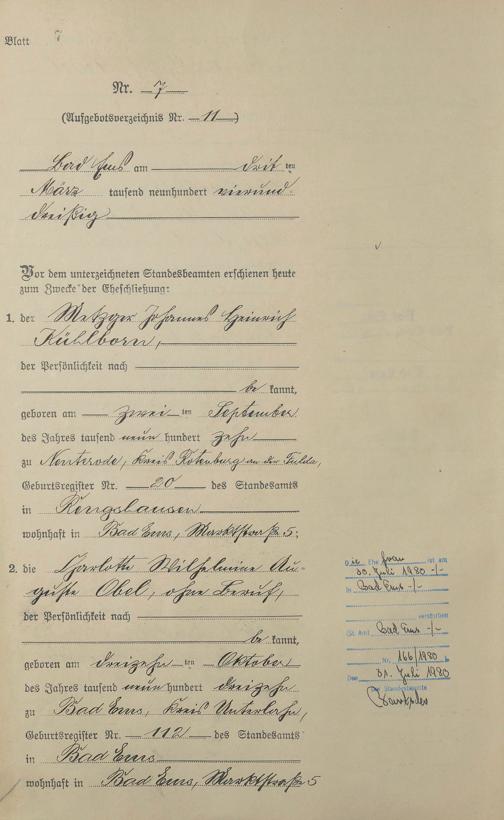 Blatt 7
Nr. 7
(Aufgebotsverzeichnis Nr. 11)
Bad Ems am drit ten
März tausend neunhundert vierund-
dreißig
Vor dem unterzeichneten Standesbeamten erschienen heute
zum Zwecke der Eheschließung:
1. der Metzger Johannes Heinrich
Kühlborn,
der Persönlichkeit nach
be kannt,
geboren am zwei ten September
des Jahres tausend neun hundert zehn
zu Nenterode, Kreis Rotenburg an der Fulda,
Geburtsregister Nr. 20 des Standesamts
in Rengshausen
wohnhaft in Bad Ems, Marktstraße 5;
2. die Charlotte Wilhelmine Au-
guste Obel, ohne Beruf,
der Persönlichkeit nach
be kannt,
geboren am dreizehn ten Oktober
des Jahres tausend neun hundert dreizehn
zu Bad Ems, Kreis Unterlahn,
Geburtsregister Nr. 112 des Standesamts
in Bad Ems
wohnhaft in Bad Ems, Marktstraße 5
Die Ehefrau ist am
30. Juli 1980 -/-
in Bad Ems -/-
verstorben
(St. Amt Bad Ems -/-
Nr. 166/1980
Den 31. Juli 1980
Der Standesbeamte